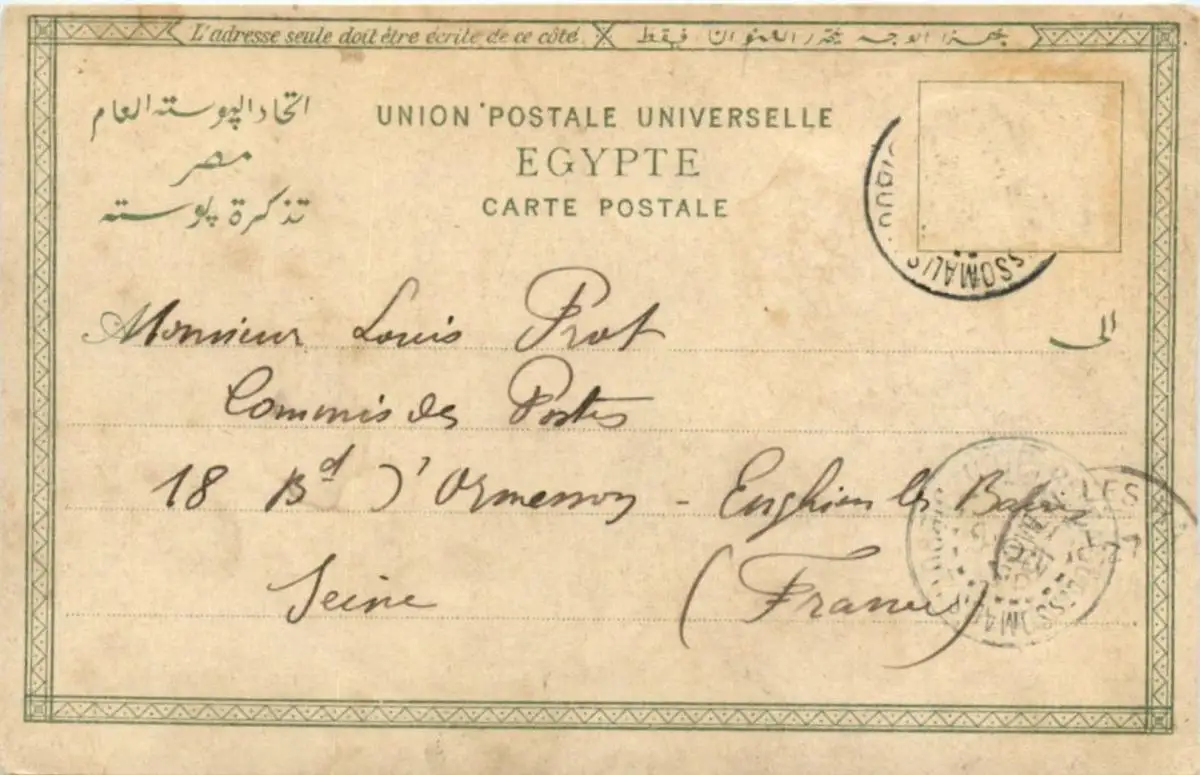 L'adresse seule doit être écrite de ce côté. فقط
اتحاد الپوسته العام
مصر
تذكرة پوسته
UNION POSTALE UNIVERSELLE
EGYPTE
CARTE POSTALE
SSOMALIS
الى
Monsieur Louis Prot
Commis des Postes
18 Bd d'Ormesson - Enghien les Bains
Seine (France)